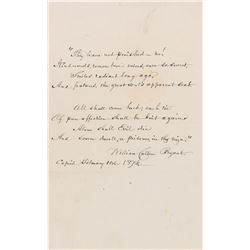 "They have not perished — no!
Kind words, remembered voices once so sweet,
Smiles, radiant long ago,
And features, the great soul's apparent seat

All shall come back, each tie
Of pure affection shall be knit again;
Alone shall Evil die
And sorrow dwell a prisoner in thy reign."
William Cullen Bryant
Copied February 11th 1874.